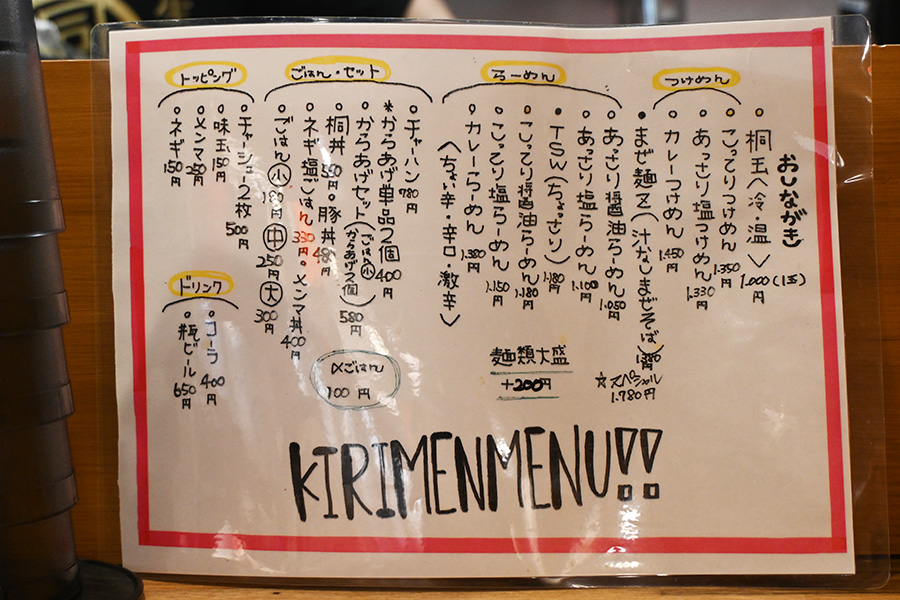 おしながき
つけめん
桐玉〈冷・温〉1,000(1玉)円
こってりつけめん 1,350円
あっさり塩つけめん 1,330円
カレーつけめん 1,450円
まぜ麺Z(汁なしまぜそば)
☆スペシャル 1,780円
らーめん
あっさり醤油らーめん 1,050円
あっさり塩らーめん 1,100円
TSW(ちょっさり) 1,180円
こってり醤油らーめん 1,180円
こってり塩らーめん 1,150円
カレーらーめん 1,380円
〈ちょい辛・辛口・激辛〉
麺類大盛
+200円
ごはん・セット
チャーハン 780円
*からあげ単品2個 400円
からあげセット(ごはん小 からあげ2個) 580円
桐丼 550円 豚丼 480円
ネギ塩ごはん 330円 メンマ丼 400円
ごはん 小 180円 中 250円 大 300円
〆ごはん
100円
トッピング
チャーシュー2枚 500円
味玉 150円
メンマ 250円
ネギ 150円
ドリンク
コーラ 400円
瓶ビール 650円
KIRIMENMENU!!